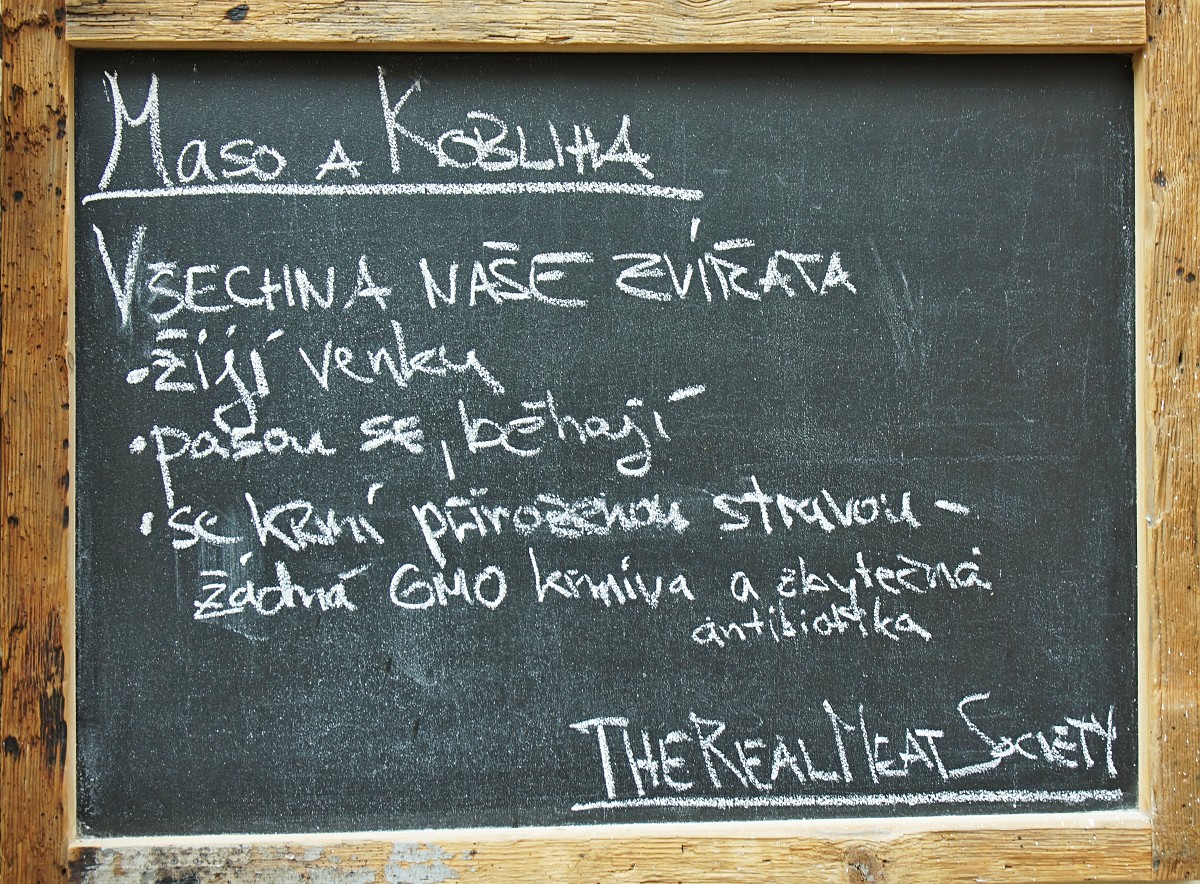 Maso a KOBLIHA
VŠECHNA NAŠE ZVÍŘATA
• žijí venku
• pasou se, běhají
• se krmí přirozenou stravou -
žádná GMO krmiva a zbytečná
antibiotika
THE REAL MEAT SOCIETY